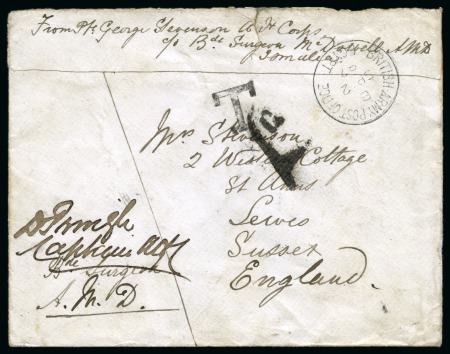 From Pte George Stevenson A H Corps
c/o Bde Surgeon McDowell A.M.D
Ismailia
BRITISH ARMY POST OFFICE
T
Mrs Stevenson
2 Western Cottage
St Anns
Lewes
Sussex
England.
Bde Surgeon
A. M. D.